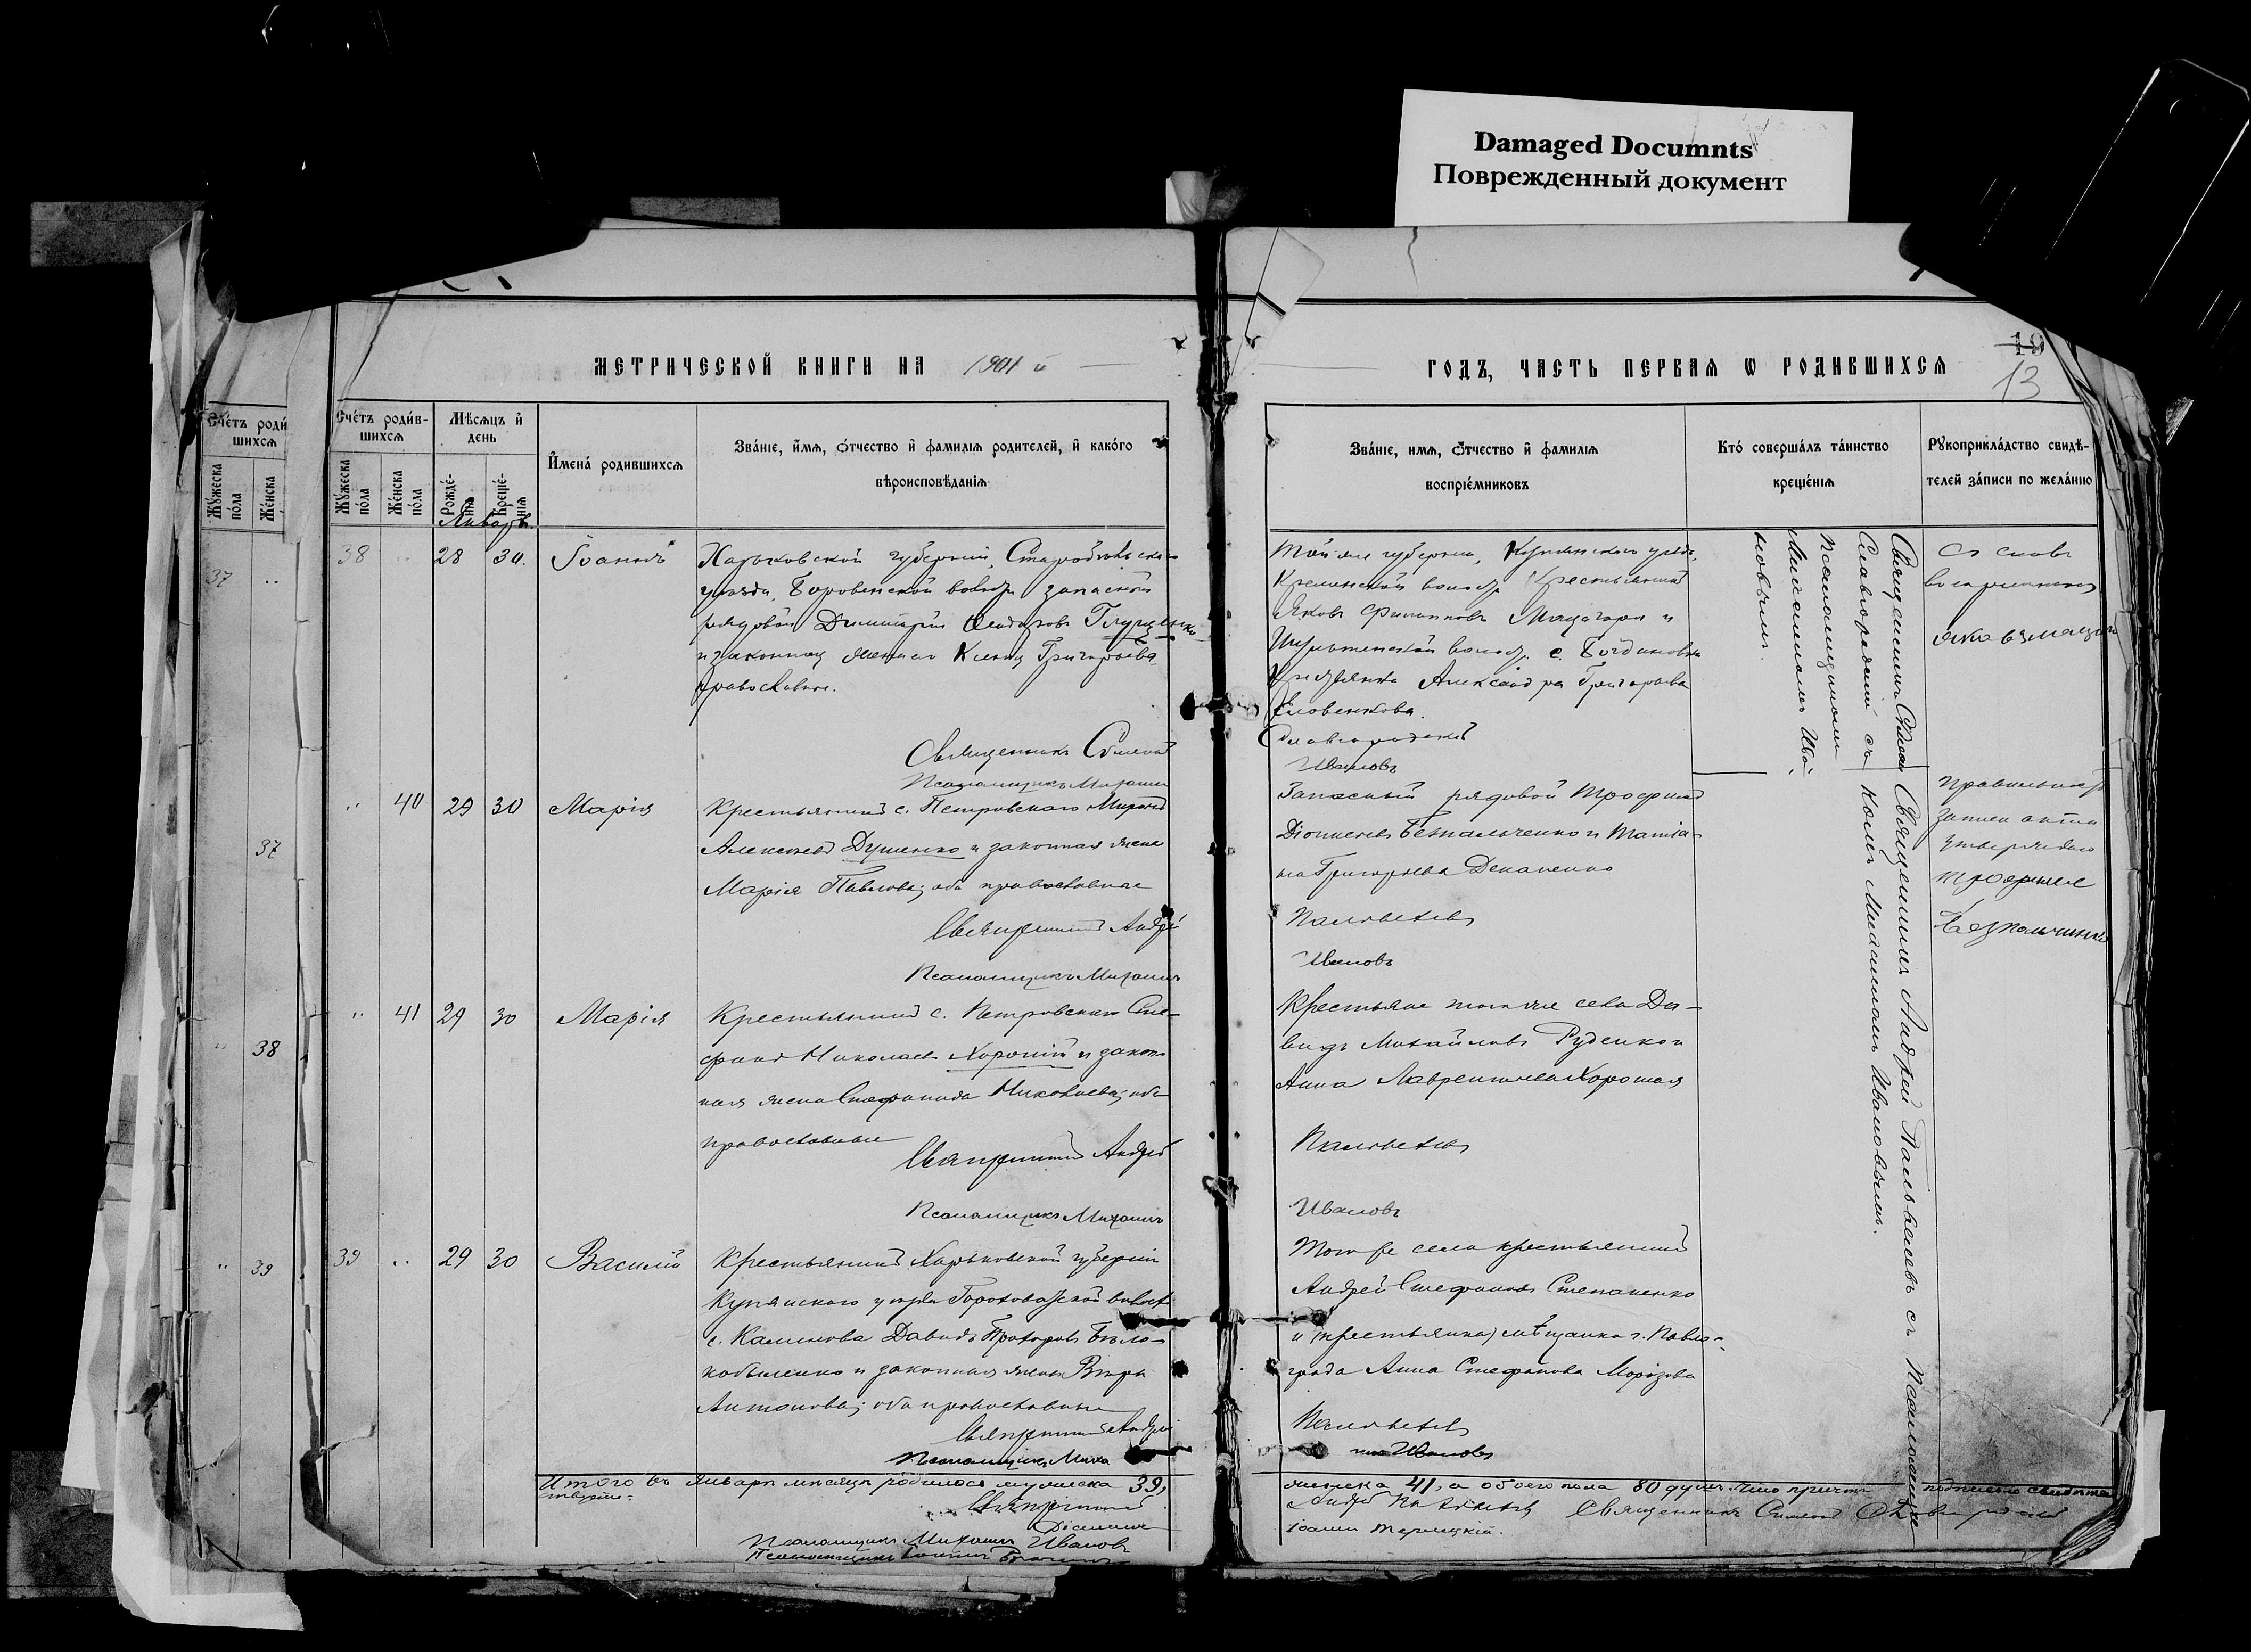 Damaged Documnts
Поврежденный документ
МЕТРИЧЕСКОЙ КНИГИ НА 1901 й
ГОДЪ, ЧАСТЬ ПЕРВАЯ Ѡ РОДИВШИХСЯ
19
13
Счётъ роди
шихся
Мужеска пола
Женска
Счётъ родив-
шихся
Мужеска пола
Женска пола
Мѣсяцъ и день
Рожде-
нія
Креще-
нія
Имена родившихся
Званіе, имя, отчество и фамилія родителей, и какого
вѣроисповѣданія
Званіе, имя, отчество и фамилія
воспріемниковъ
Кто совершалъ таинство
крещенія
Рукоприкладство свидѣ-
телей записи по желанію
Январь
37 "
38 " 28 30. Іоаннъ
Харьковской губерніи, Старобѣльскаго
уѣзда, Боровенской волости запасной
рядовой Димитрій Глущенко
и законная жена его Ксенія Григорьева
православные.
Священникъ Симеонъ
Псаломщикъ Михаилъ
Той же губерніи, Купянскаго уѣзда,
Кременской волости Крестьянинъ
Яковъ Филипповъ Мацегора и
волости с. Богдановки
Крестьянка Александра Григорьева
Еловенкова.
Славгородскій
Ивановъ
Священникъ Симеонъ
Славгородскій съ
Псаломщикомъ
Михаиломъ Ива-
новымъ.
Со словъ
37
" 40 29 30 Марія
Крестьянинъ с. Петровскаго Миронъ
Алексѣевъ Душенко и законная жена
Марія Павлова; оба православные
Священникъ Андрей
Псаломщикъ Михаилъ
Запасный рядовой Трофимъ
Діонисіевъ Безпальченко и Татіа-
на Григорьева Деканенко
Ивановъ
Правильность
записи акта
утверждаю
Трофимъ
Безпальченко
" 38
" 41 29 30 Марія
Крестьянинъ с. Петровскаго Сте-
фанъ Николаевъ Хорошій и закон-
ная жена Стефанида Николаева; оба
православные
Священникъ Андрей
Псаломщикъ Михаилъ
Крестьяне того же села Да-
видъ Михайловъ Руденко и
Анна Лаврентьева Хорошая
Ивановъ
Священникъ Андрей съ Псаломщи-
комъ Михаиломъ Ивановымъ.
" 39
39 " 29 30 Василій
Крестьянинъ Харьковской губерніи
Купянскаго уѣзда Гороховатской волости
с. Калинова Давидъ Прохоровъ Бѣло-
кобыленко и законная жена Вѣра
Антонова; оба православные
Священникъ Андрей
Псаломщикъ Миха
Того же села крестьянинъ
Андрей Стефановъ Степаненко
и (крестьянка) мѣщанка г. Павло-
града Анна Стефанова Морозова
Ивановъ
Итого въ Январѣ мѣсяцѣ родилось мужеска 39,
женска 41, а обоего пола 80 душъ. Что причтъ подписью свидѣтель
ствуетъ:
Священникъ
Андрей
Священникъ Симеонъ Славгородскій
Псаломщикъ Михаилъ Ивановъ
Псаломщикъ